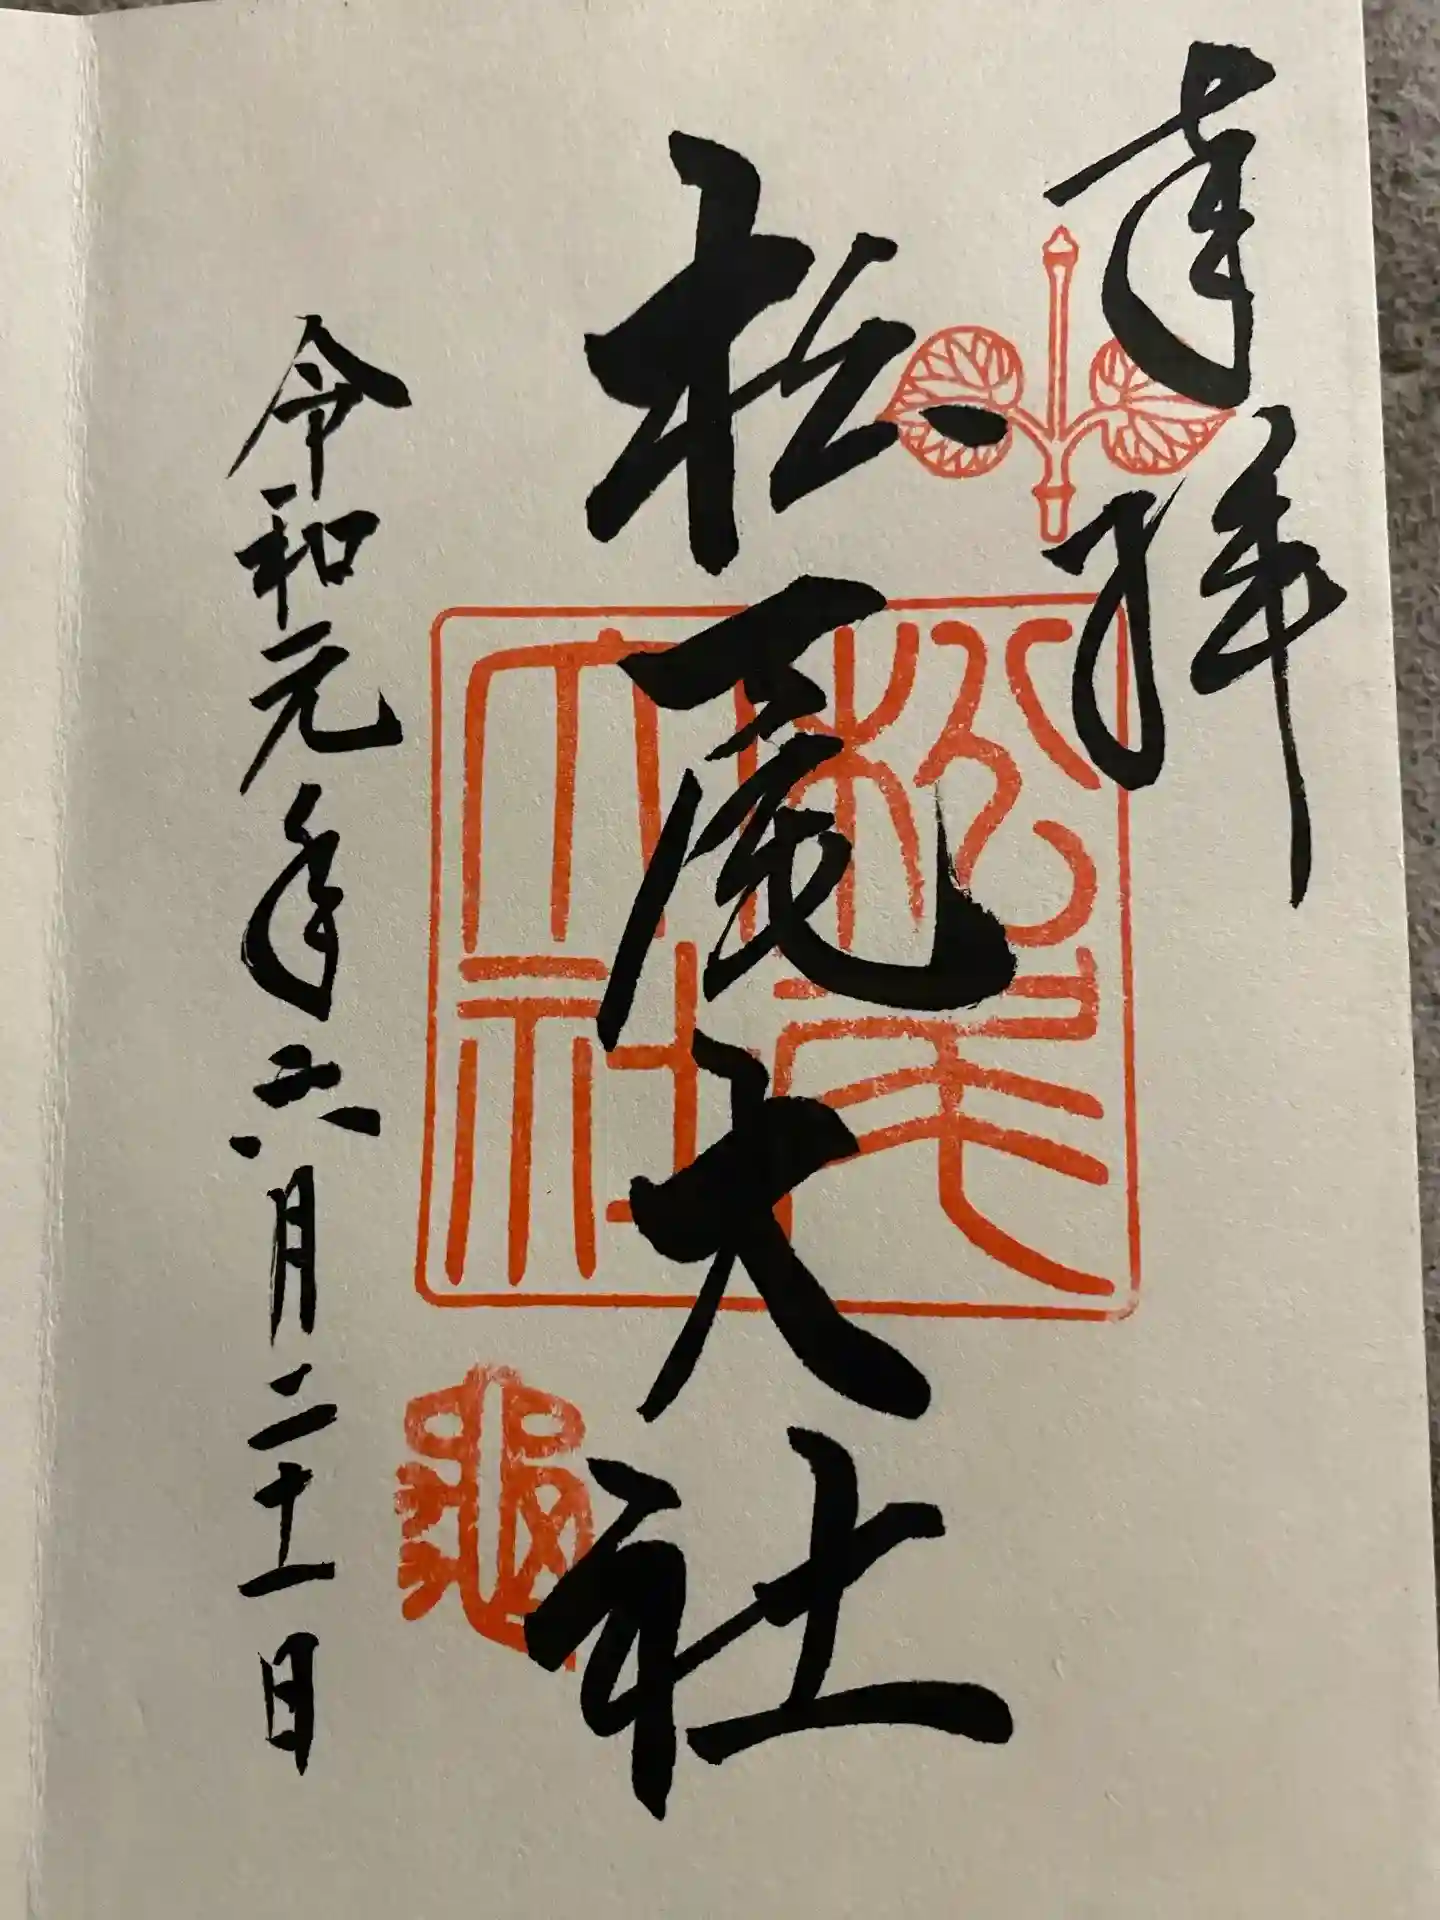 奉拝
松尾大社
令和元年六月二十一日
松尾大社
亀